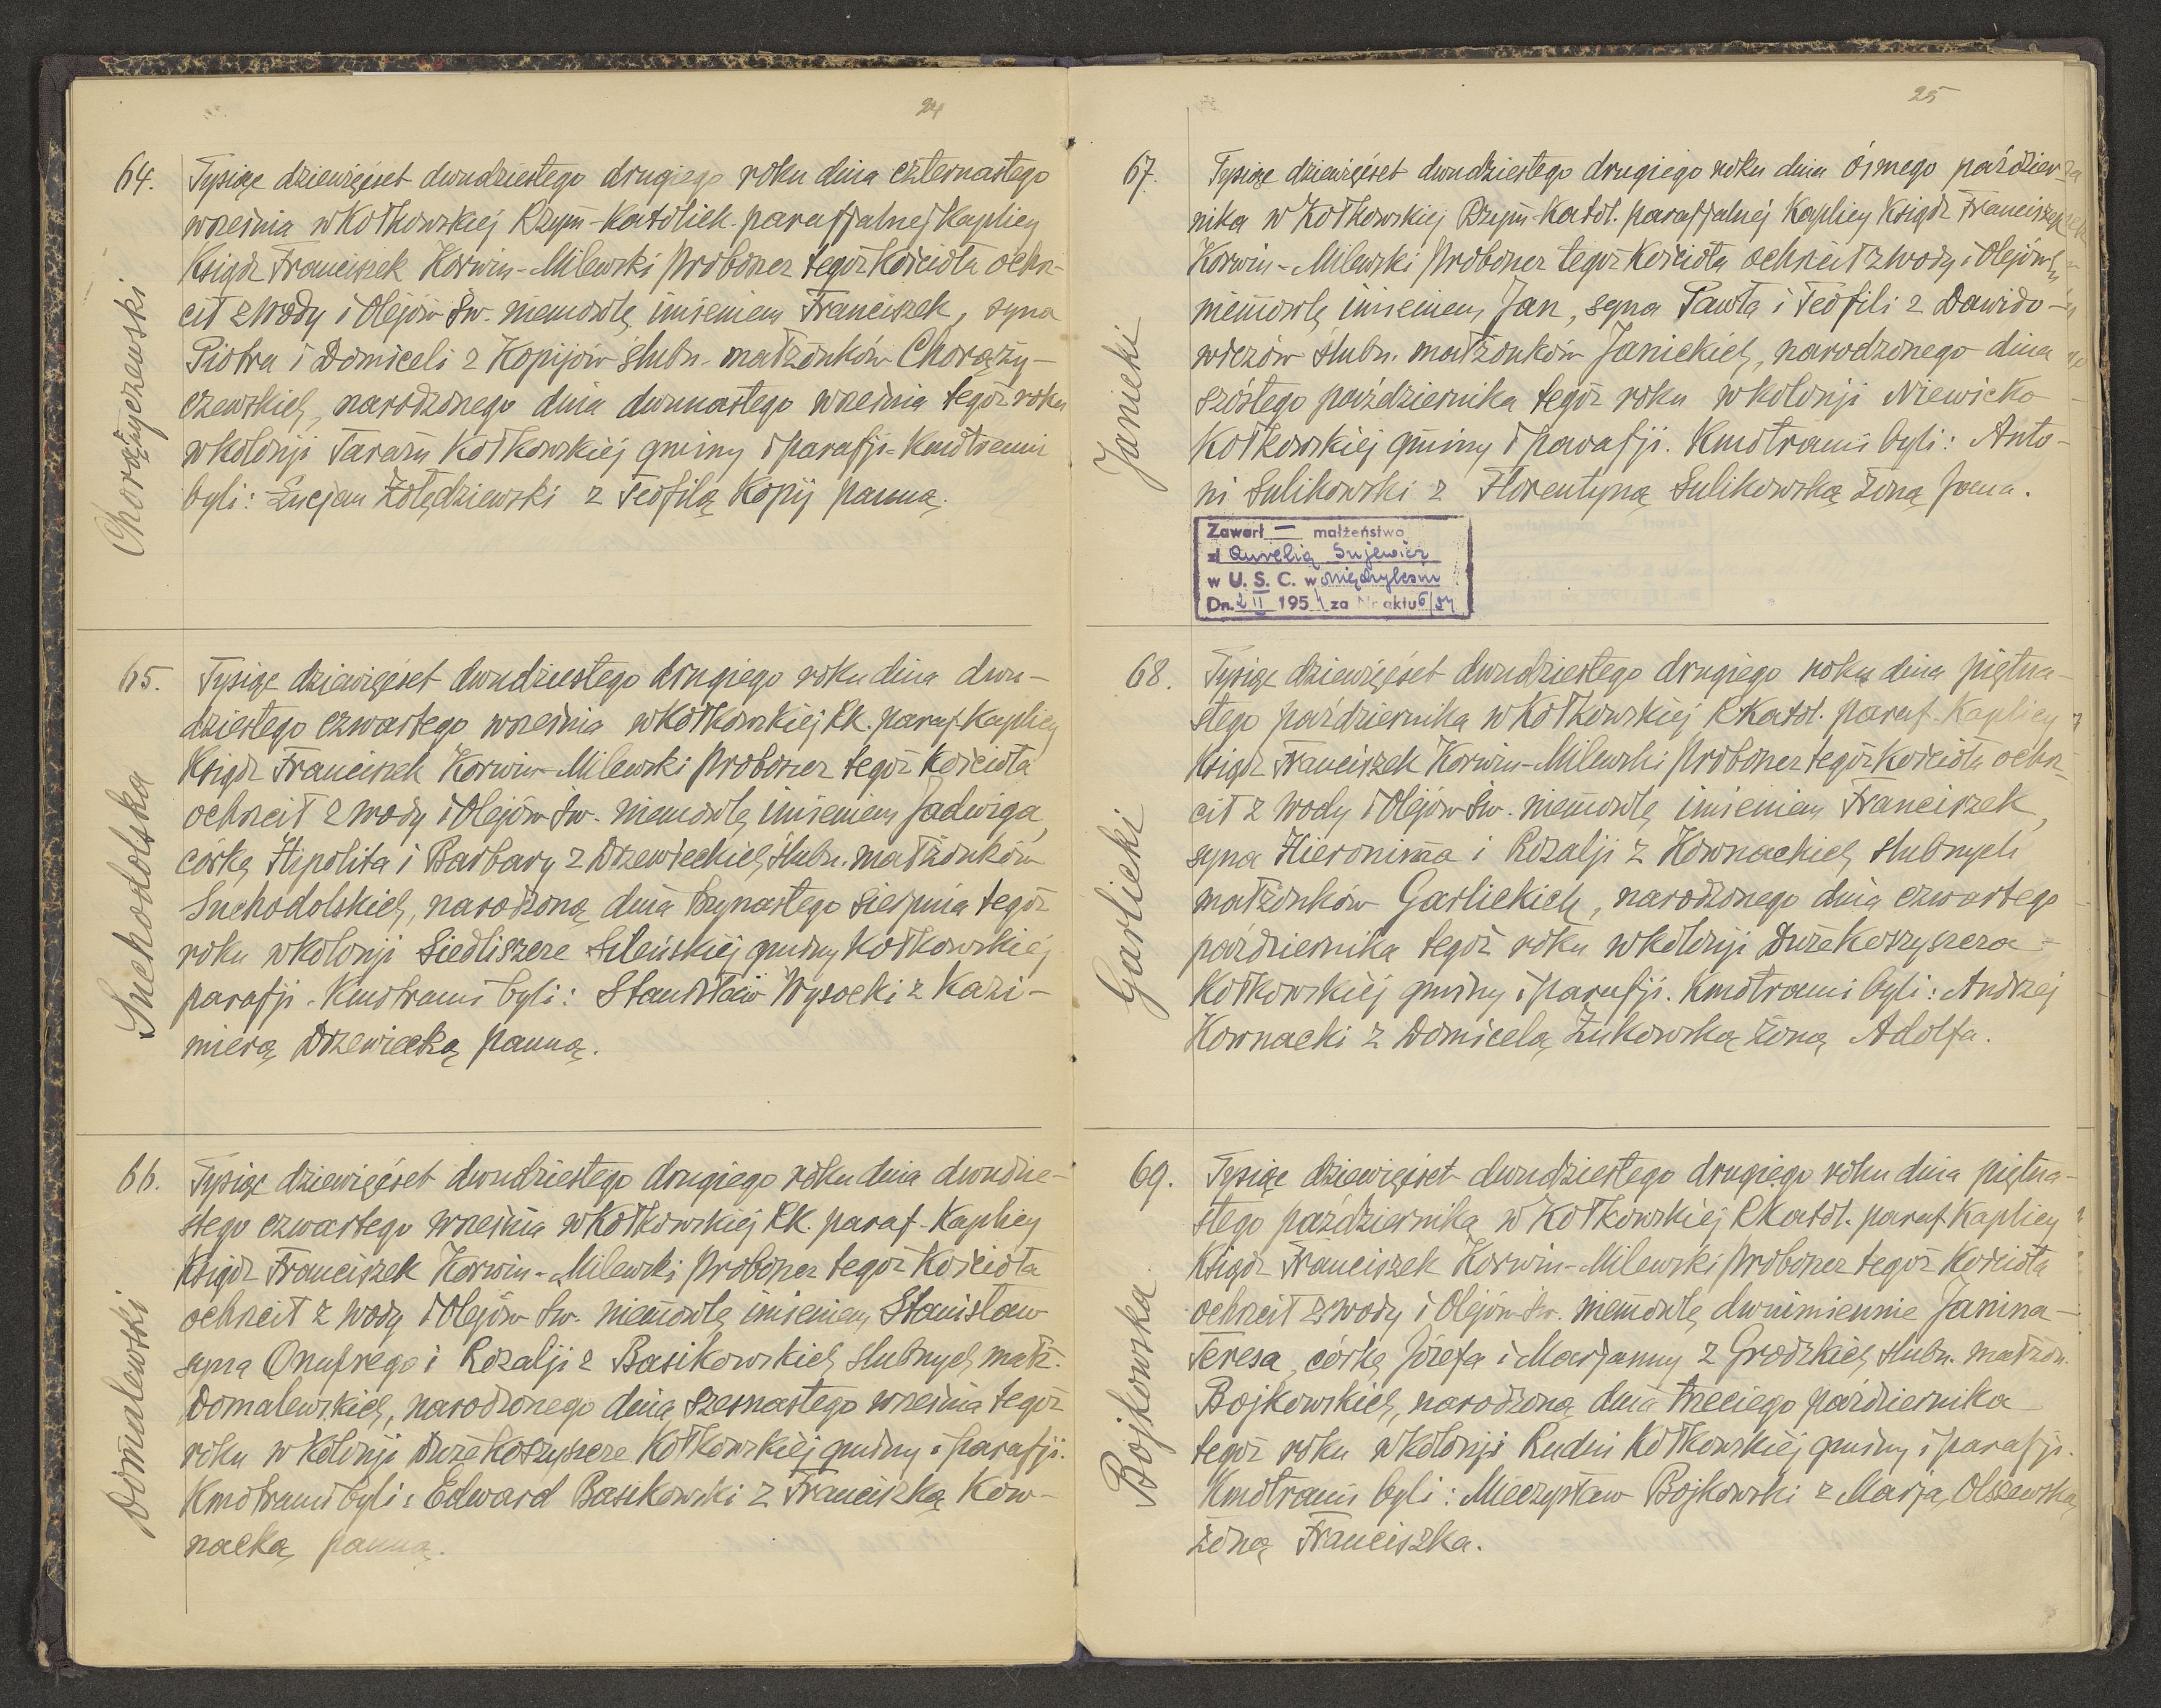 24
64.
Chorążyczewski
Tysiąc dziewięćset dwudziestego drugiego roku dnia czternastego
września w Kołkowskiej Rzym-Katolick. parafjalnej Kaplicy
Ksiądz Franciszek Korwin-Milewski Proboszcz tegoż Kościoła ochrz-
cił z Wody i Olejów Św. niemowlę imieniem Franciszek, syna
Piotra i Domiceli z Kopijów ślubn. małżonków Chorąży-
czewskich, narodzonego dnia dwunastego września tegoż roku
w kolonji Taraży Kołkowskiej gminy i parafji. Kmotrami
byli: Łucjan Żołędziewski z Teofilą Kopij panną.
65.
Suchodolska
Tysiąc dziewięćset dwudziestego drugiego roku dnia dwu-
dziestego czwartego września w Kołkowskiej RK. paraf. Kaplicy
Ksiądz Franciszek Korwin-Milewski Proboszcz tegoż Kościoła
ochrzcił z wody i Olejów Św. niemowlę imieniem Jadwiga,
córkę Hipolita i Barbary z Drzewieckich ślubn. małżonków
Suchodolskich, narodzoną dnia trzynastego sierpnia tegoż
roku w kolonji Siedliszcze Sileńskiej gminy Kołkowskiej
parafji. Kmotrami byli: Stanisław Wysocki z Kazi-
mierą Drzewiecką panną.
66.
Domalewski
Tysiąc dziewięćset dwudziestego drugiego roku dnia dwudzie-
stego czwartego września w Kołkowskiej RK. paraf. Kaplicy
Ksiądz Franciszek Korwin-Milewski Proboszcz tegoż Kościoła
ochrzcił z wody i Olejów Św. niemowlę imieniem Stanisław
syna Onufrego i Rozalji z Basikowskich ślubnych małż.
Domalewskich, narodzonego dnia szesnastego września tegoż
roku w kolonji Duże Koszyszcze Kołkowskiej gminy i parafji.
Kmotrami byli: Edward Basikowski z Franciszką Kow-
nacką panną.
25
67.
Janicki
Tysiąc dziewięćset dwudziestego drugiego roku dnia ósmego paździer-
nika w Kołkowskiej Rzym-Katol. parafjalnej Kaplicy Ksiądz Franciszek
Korwin-Milewski Proboszcz tegoż Kościoła ochrzcił z Wody i Olejów Św.
niemowlę imieniem Jan, syna Pawła i Teofili z Dawido-
wiczów ślubn. małżonków Janickich, narodzonego dnia
szóstego października tegoż roku w kolonji Niewicko
Kołkowskiej gminy i parafji. Kmotrami byli: Anto-
ni Sulikowski z Florentyną Sulikowską żoną Jana.
Zawarł — małżeństwo
z Aurelią Sujewicz
w U. S. C. w Międzylesiu
Dn. 2 II 1954 za Nr aktu 6/54
68.
Garlicki
Tysiąc dziewięćset dwudziestego drugiego roku dnia piętna-
stego października w Kołkowskiej RKatol. paraf. Kaplicy
Ksiądz Franciszek Korwin-Milewski Proboszcz tegoż Kościoła ochrz-
cił z wody i Olejów Św. niemowlę imieniem Franciszek,
syna Hieronima i Rozalji z Kownackich ślubnych
małżonków Garlickich, narodzonego dnia czwartego
października tegoż roku w kolonji Duże Koszyszcza
Kołkowskiej gminy i parafji. Kmotrami byli: Andrzej
Kownacki z Domicelą Żukowską żoną Adolfa.
69.
Bojkowska
Tysiąc dziewięćset dwudziestego drugiego roku dnia piętna-
stego października w Kołkowskiej RKatol. paraf. Kaplicy
Ksiądz Franciszek Korwin-Milewski Proboszcz tegoż Kościoła
ochrzcił z wody i Olejów Św. niemowlę dwuimiennie Janina-
Teresa, córkę Józefa i Marjanny z Grodzkich ślubn. małżon.
Bojkowskich, narodzoną dnia trzeciego października
tegoż roku w kolonji Rudni Kołkowskiej gminy i parafji.
Kmotrami byli: Mieczysław Bojkowski z Marją Olszewską
żoną Franciszka.